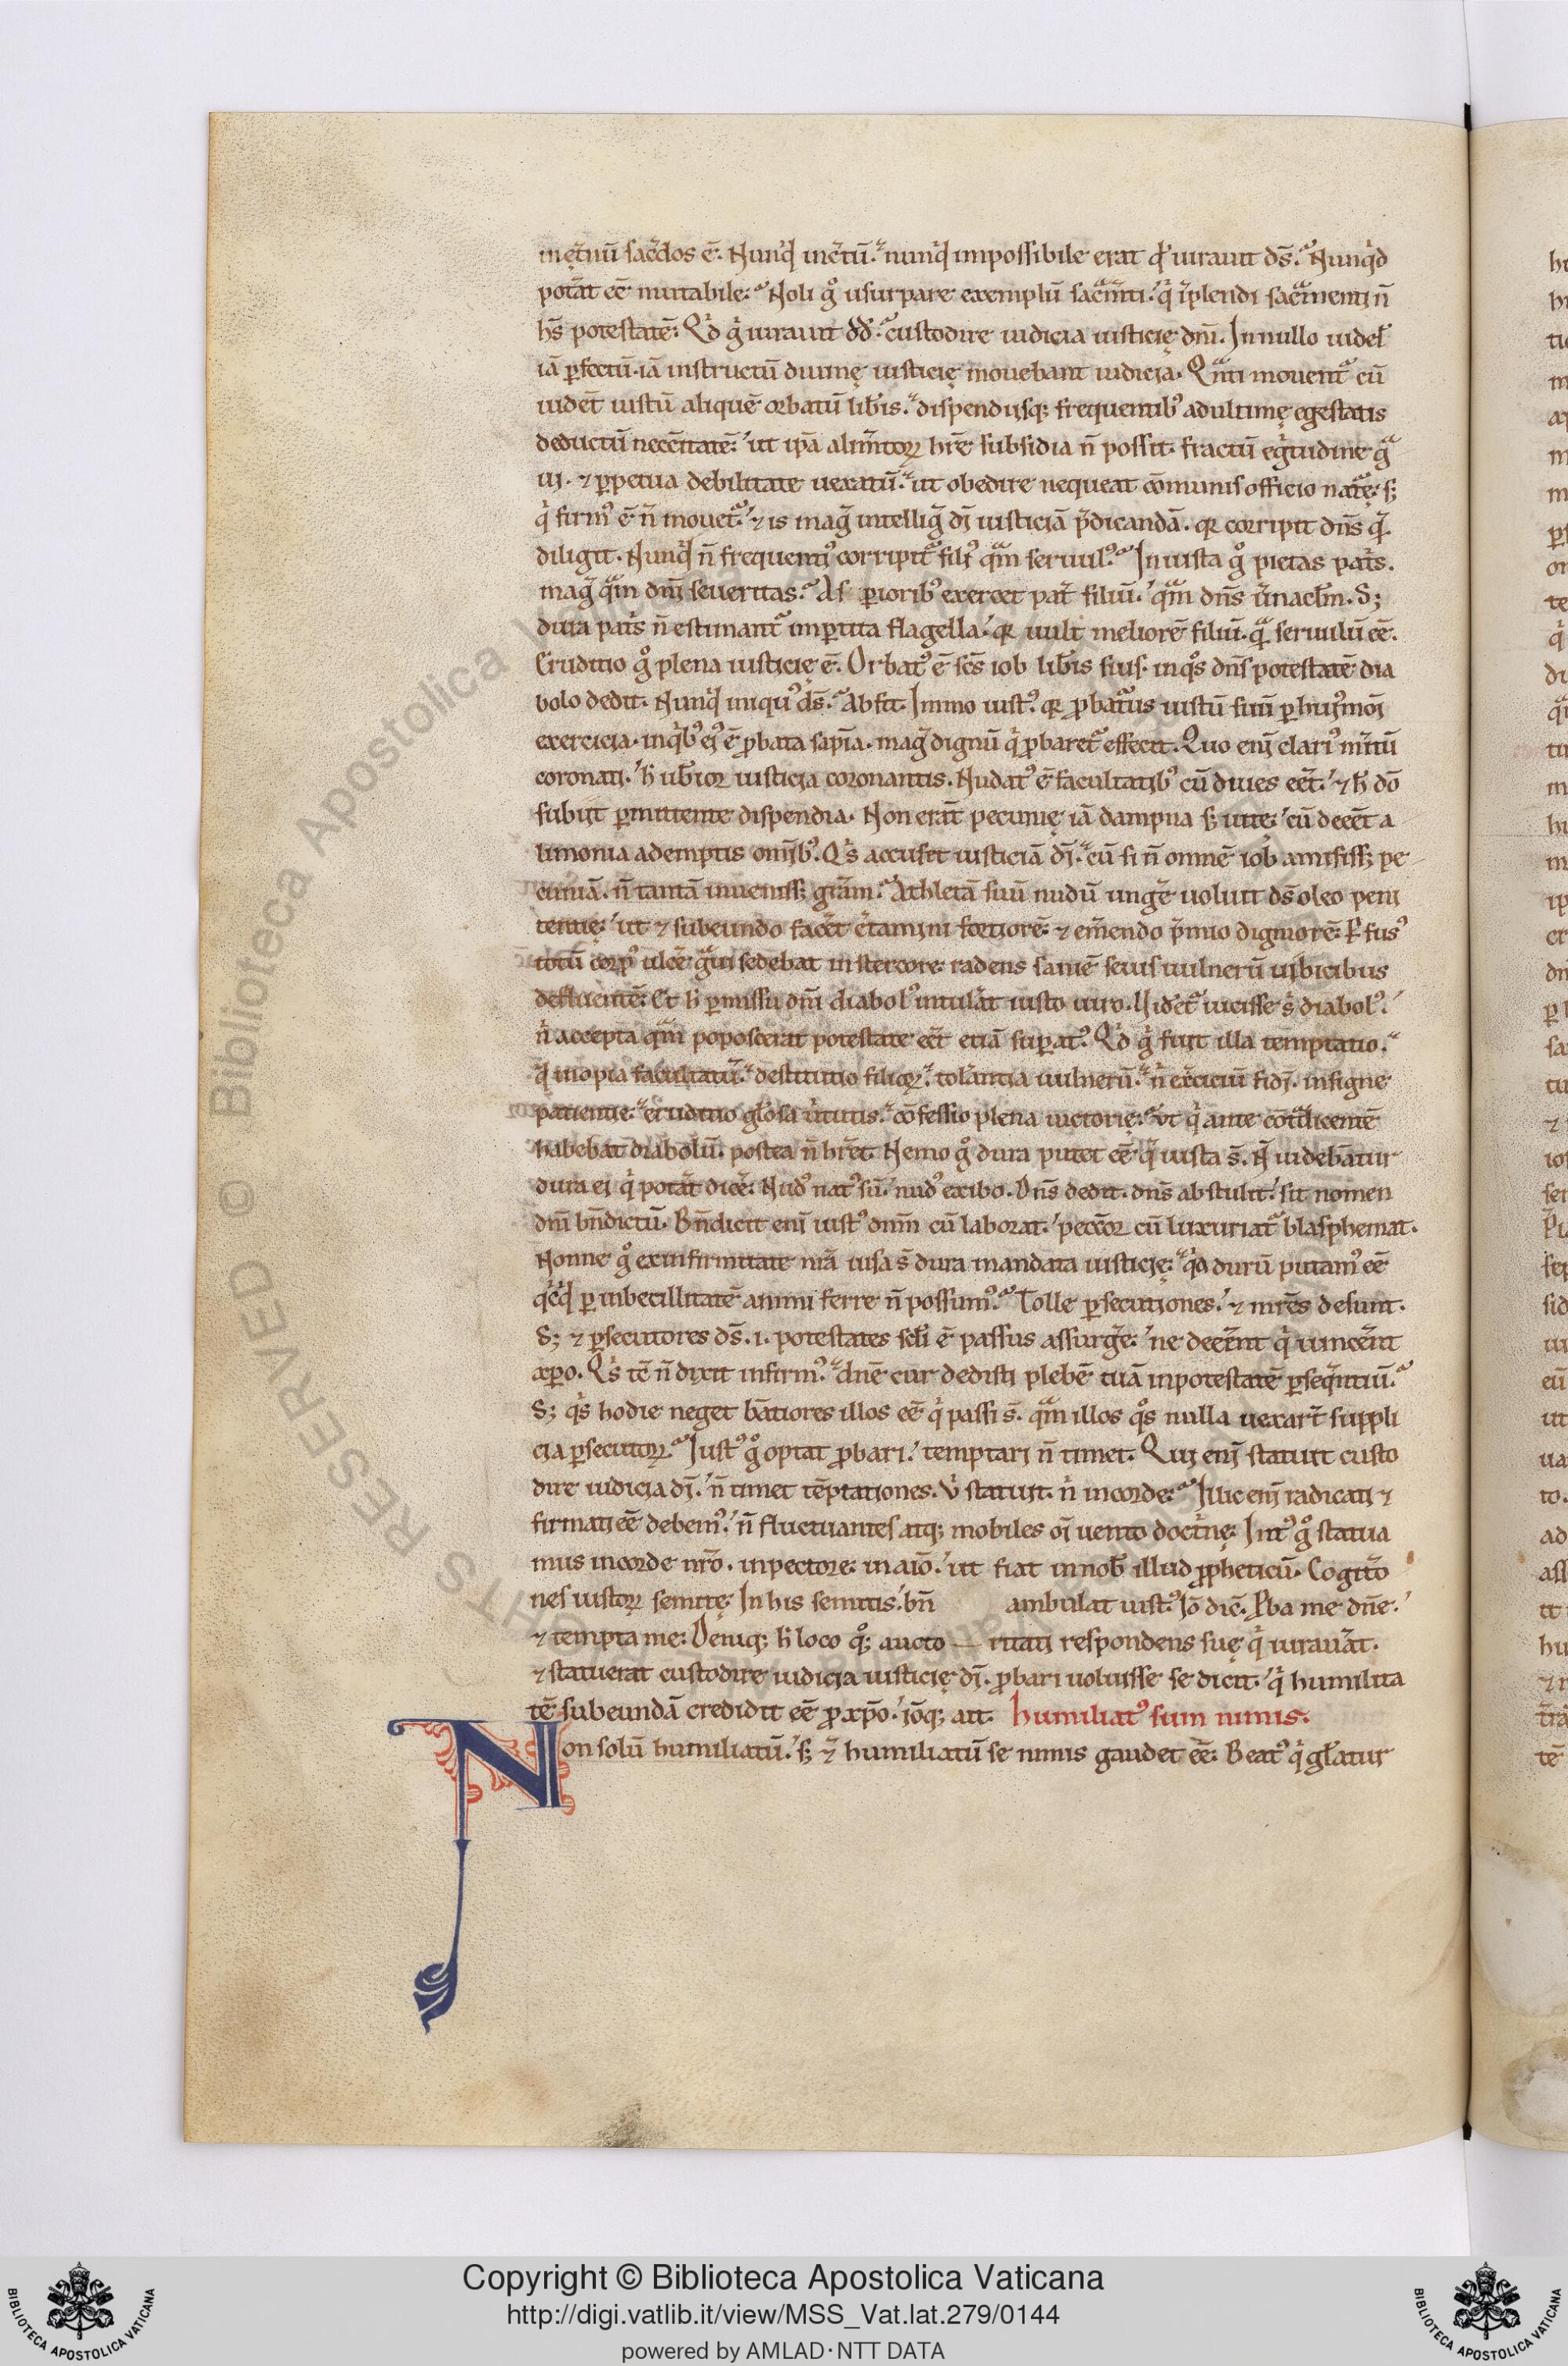 inęt̃nū sac̃dos ē. Nunq̇d inc̃tū. nunq̇d impossibile erat qd̕ iurauit ds̄. Nunq̇d
potat̃ eē mutabile. Noli gͦ usurpare exemplū sac̃mti. q̇ ĩplendi sac̃menti n̄
hs̄ potestatē. Qḋ gͦ iurauit dd̄. custodire iudicia iusticię dn̄i. In nullo uidel̕
iā ꝑfectū. iā instructū diuinę iusticię mouebant iudicia. Qn̄ti mouent᷑ cū
uidet̄ iustū aliquē orbatū lib̕is. dispendijsq; frequentibꝰ ad ultimę egestatis
deductū necēitatē. ut ip̄a alim̃toꝝ hr̄e subsidia n̄ possit. fractū eg̃tudine gͣ
ui. ⁊ ꝑpetua debilitate uexatū. ut obedire nequeat cōmunis officio nat̃ę. s;
q̇ firmꝰ ē n̄ mouet᷑. ⁊ is mag̃ intellig̃ dī iusticiā p̃dicandā. qꝛ corripit dn̄s q̄.
diligit. Nunq̇d n̄ frequentiꝰ corripit᷑ filiꝰ qͣm seruulꝰ. Iniusta gͦ pietas pat̕s.
mag̃ qͣm dn̄i seueritas. As ꝑiorib᷒ exercet pat̃ filiū. qͣm dn̄s ũnacl̄m. S;
dura pat̕s n̄ estimant᷑ inꝑtita flagella. qꝛ uult meliorē filiū. qͣ seruulū eē.
Eruditio gͦ plena iusticię ē. Orbatꝰ ē sc̄s iob lib̕is suis. in qͦs dn̄s potestatē dia
bolo dedit. Nunq̇d iniquꝰ ds̄. Absit. Immo iustꝰ. qꝛ ꝓbatur̕us iustū suū ꝑ huijꝰmoi
exercicia. in q̇bꝰ eiꝰ ē ꝓbata sapīa. mag̃ dignū q̇ ꝓbaret᷑ effecit. Quo enī clariꝰ m̃itū
coronati. h̄ ub̕ior iusticia coronantis. Nudatꝰ ē facultatibꝰ cū diues eēt. ⁊ h̄ dō
subijt ꝑmittente dispendia. Non erāt pecunię iā dampna s; uitę. cū deeēt a
limonia ademptis omībꝰ. Q̇s accuset iusticiā dī. cū si n̄ omnē iob amisiss; pe
cuniā. n̄ tantā inueniss; grām. Athletā suū nudū unge̕ uoluit ds̄ oleo peni
tentię. ut ⁊ subeundo facet̃ c̃tamini fortiorē. ⁊ em̃endo p̃mio digniorē. ꝑfusꝰ
totū corpꝰ ulc̃e gͣui sedebat in stercore radens saniē seuis uulnerū uibicibus
defluentē. Et h̄ ꝑmissu dn̄i diabolꝰ intulat̃ iusto uiro. Uidet᷑ uicisse s; diabolꝰ.
n̕ accepta qͣm poposcerat potestate eēt etiā suꝑatꝰ. Qḋ gͦ fuit illa temptatio.
q̇d inopia facultatū. destitutio filioꝝ. tolantia uulnerū. n̕ ex̃ciciū fidī. insigne
patientię. eruditio gl̄osa ũtutis. cōfessio plena uictorię. Vt q̇ ante cōtͣdicentē
habebat diabolū. postea n̄ hr̄et. Nemo gͦ dura putet eē q̄ iusta s̄. N̄ uidebātur
dura ei q̇ potat̃ dic̃e. Nudꝰ natꝰ sū. nudꝰ exibo. Dn̄s dedit. dn̄s abstulit. sit nomen
dn̄i bn̄dictū. Bn̄dicit enī iustꝰ dnm̄ cū laborat. peccōr cū luxuriat᷑ blasphemat.
Nonne gͦ ex infirmitate nr̄a uisa s̄ dura mandata iusticię. q̇a durū putamꝰ eē
q̇cq̇d ꝑ inbecillitatē animi ferre n̄ possumꝰ. Tolle ꝑsecutiones. ⁊ mr̄es desunt.
S; ⁊ ꝑsecutores ds̄. i. potestates scl̄i ē passus assurg̃e. ne deeēnt q̇ uinc̃ent
xp̄o. Q̇s tē n̄ dixit infirmꝰ. dn̄e cur dedisti plebē tuā in potestatē ꝑseq̃ntiū.
S; q̇s hodie neget bātiores illos eē q̇ passi s̄. qͣm illos qͦs nulla uexart̃ suppli
cia ꝑsecutoꝝ. Iustꝰ gͦ optat ꝓbari. temptari n̄ timet. Qui enī statuit custo
dire iudicia dī. n̄ timet tēptationes. Ů statuit. n̕ in corde. Illic enī radicati ⁊
firmati eē debemꝰ. n̄ fluctuantes atq; mobiles oī uento doct̕nę. Intꝰ gͦ statua
mus in corde nr̄o. in pectore. in aīo. ut fiat in nob̄ illud ꝓpheticū. Cogit̃o
nes iustoꝝ semitę. In his semitis. bn̄ ambulat iustꝰ. Iō dic̄. Proba me dn̄e.
⁊ tempta me. Deniq; h̄ loco qͦ; aucto — ritati respondens suę q̇ iurauat̃.
⁊ statuerat custodire iudicia iusticię dī. ꝓbari uoluisse se dicit. q̇ humilita
tē subeundā credidit eē ꝓ xp̄o. iōq; ait. humiliatꝰ sum nimis.
Non solū humiliatū. s; ⁊ humiliatū se nimis gaudet eē. Beatꝰ q̇ gl̄atur
Copyright © Biblioteca Apostolica Vaticana
http://digi.vatlib.it/view/MSS_Vat.lat.279/0144
powered by AMLAD·NTT DATA
BIBLIOTECA APOSTOLICA VATICANA
BIBLIOTECA APOSTOLICA VATICANA